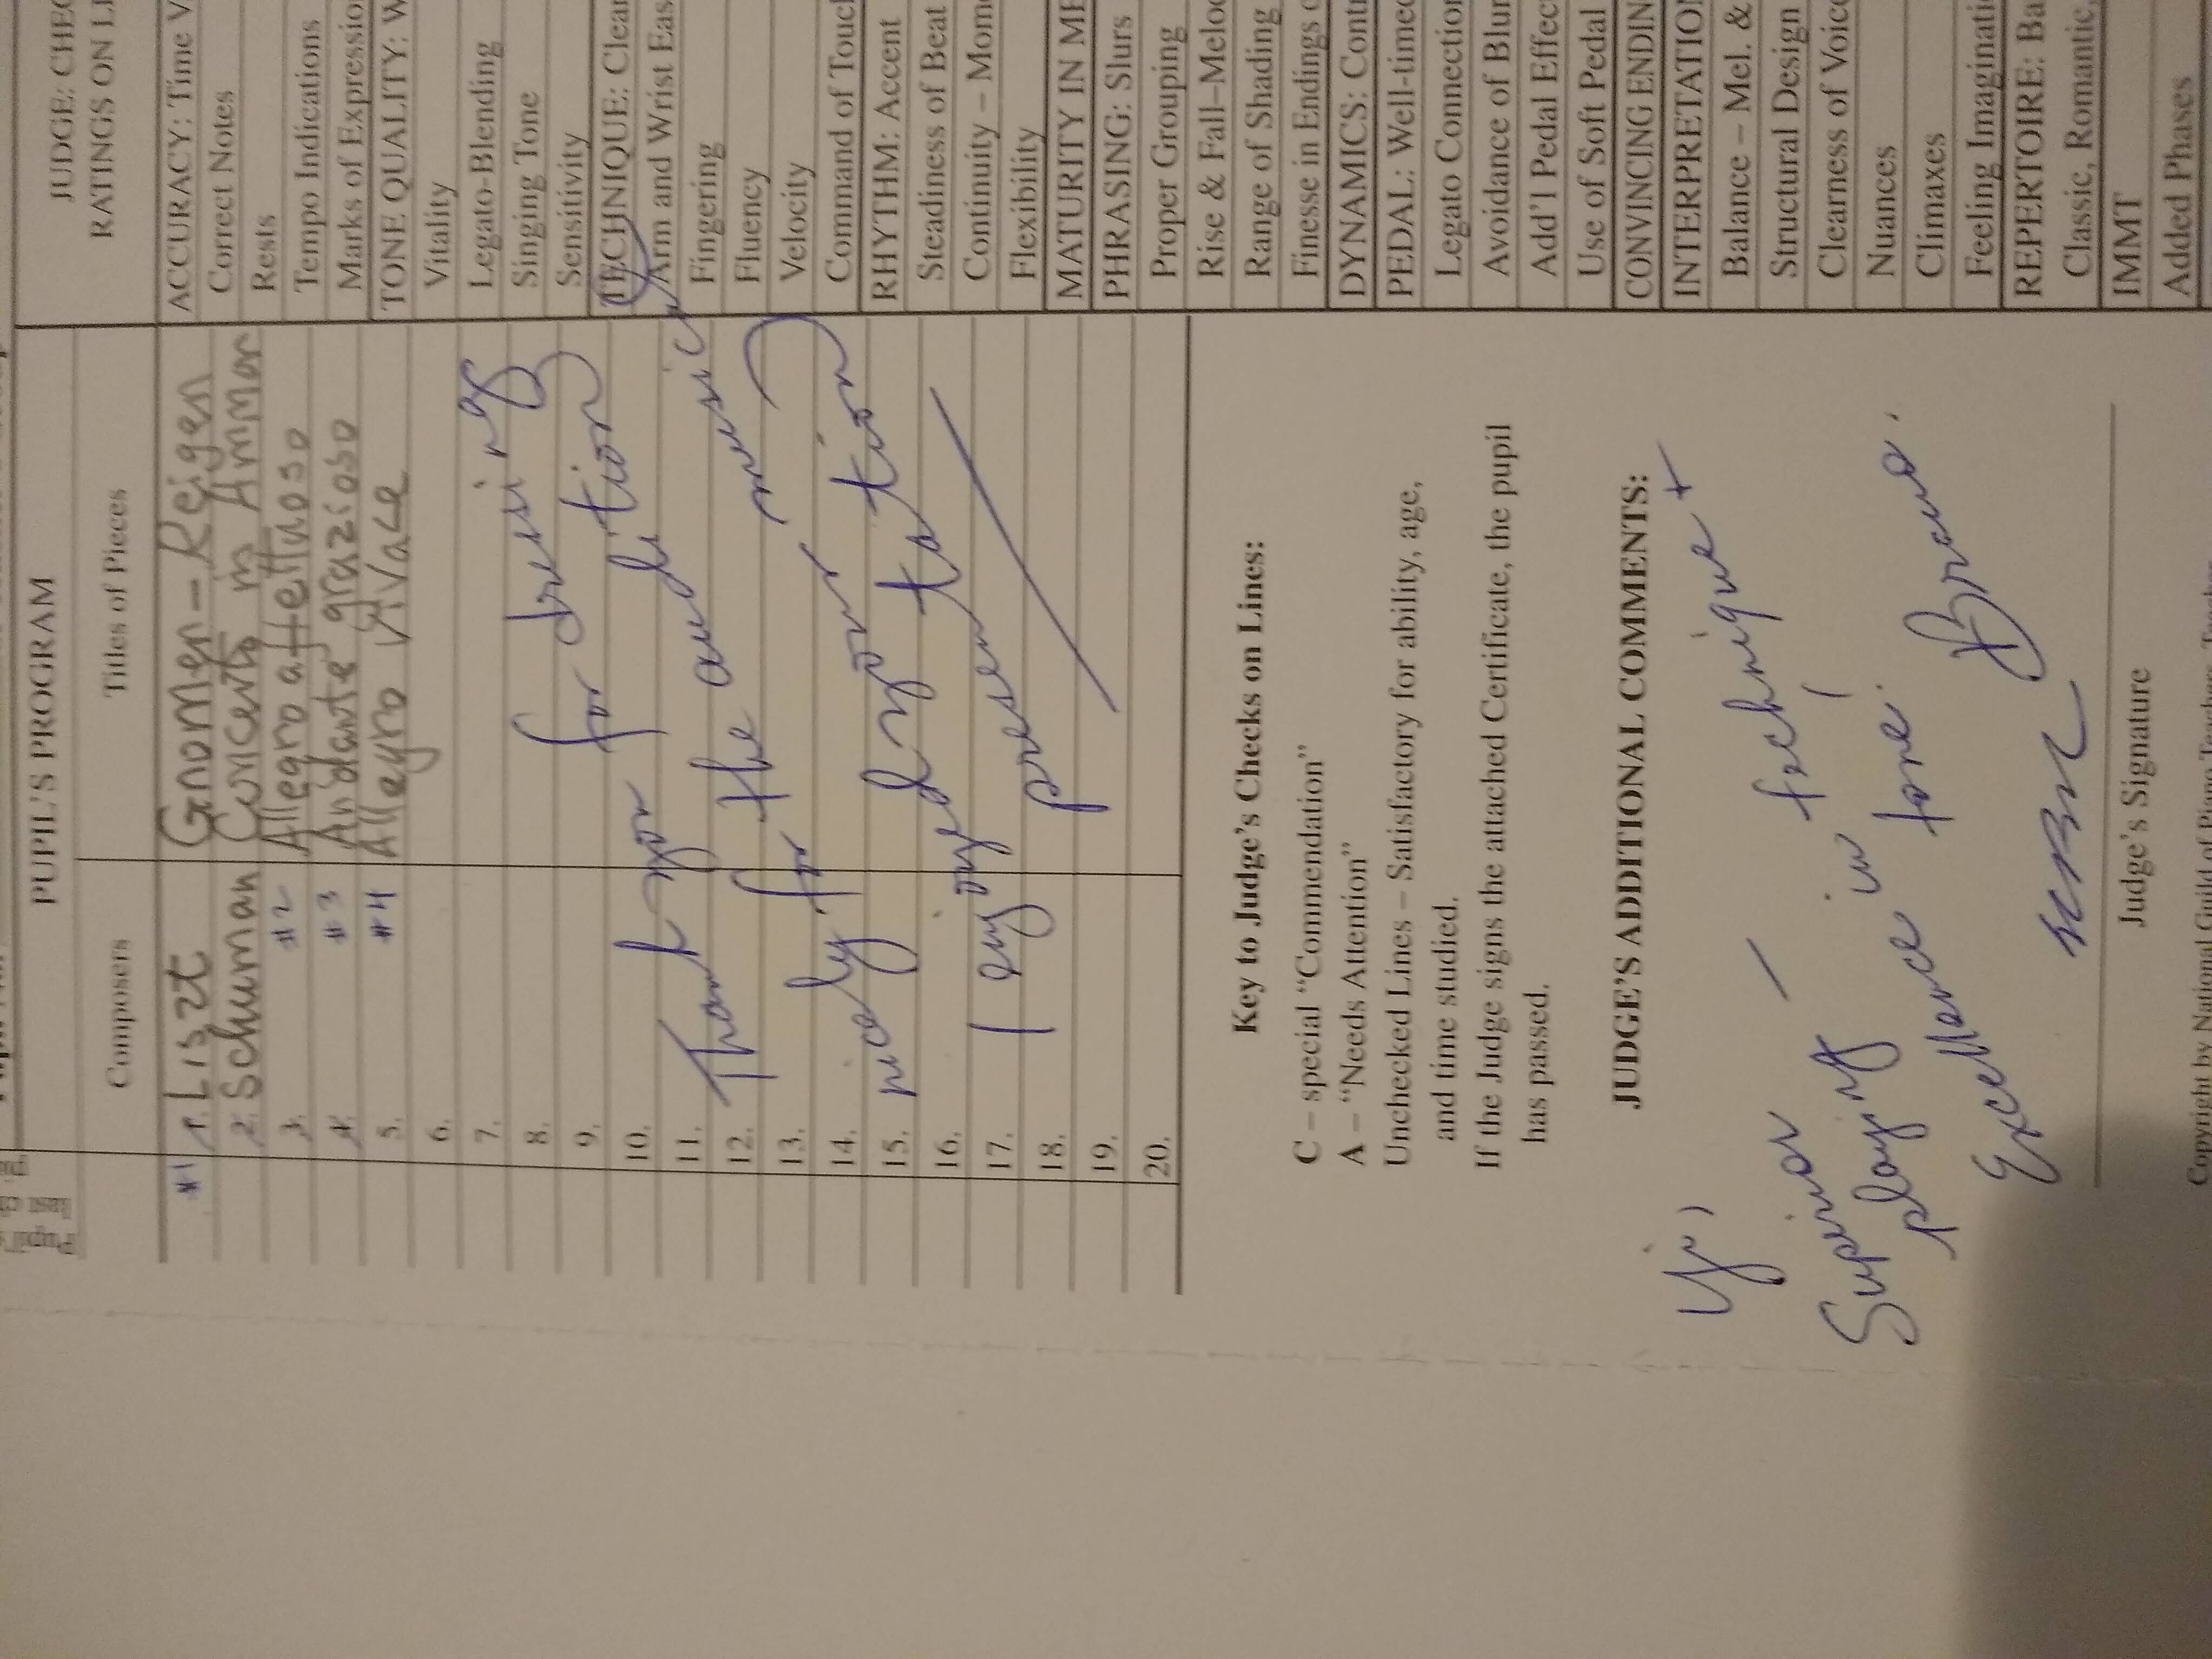 PUPIL'S PROGRAM
Composers Titles of Pieces
#1 1. Liszt Gnomen-Reigen
2. Schumman Concerto in Aminor
3. #2 Allegro affettuoso
4. #3 Andante grazioso
5. #4 Allegro Vivace
6.
7.
8.
9.
10.
11.
12.
13.
14.
15.
16.
17.
18.
19.
20.
Thank you for dressing
nicely for the audition
I enjoyed your music
presentation
Key to Judge's Checks on Lines:
C – special “Commendation”
A – “Needs Attention”
Unchecked Lines – Satisfactory for ability, age,
and time studied.
If the Judge signs the attached Certificate, the pupil
has passed.
JUDGE'S ADDITIONAL COMMENTS:
Superior – technique +
playing in tone.
Excellence Bravo.
Judge's Signature
Copyright by National Guild of Piano Teachers
JUDGE:
RATINGS ON
ACCURACY: Time
Correct Notes
Rests
Tempo Indications
Marks of Expression
TONE QUALITY:
Vitality
Legato-Blending
Singing Tone
Sensitivity
TECHNIQUE: Clear
Arm and Wrist
Fingering
Fluency
Velocity
Command of
RHYTHM: Accent
Steadiness of Beat
Continuity –
Flexibility
MATURITY IN
PHRASING: Slurs
Proper Grouping
Rise & Fall–
Range of Shading
Finesse in Endings
DYNAMICS:
PEDAL: Well-timed
Legato Connection
Avoidance of
Add'l Pedal
Use of Soft Pedal
CONVINCING
INTERPRETATION
Balance – Mel. &
Structural Design
Clearness of
Nuances
Climaxes
Feeling
REPERTOIRE:
Classic, Romantic,
IMMT
Added Phases